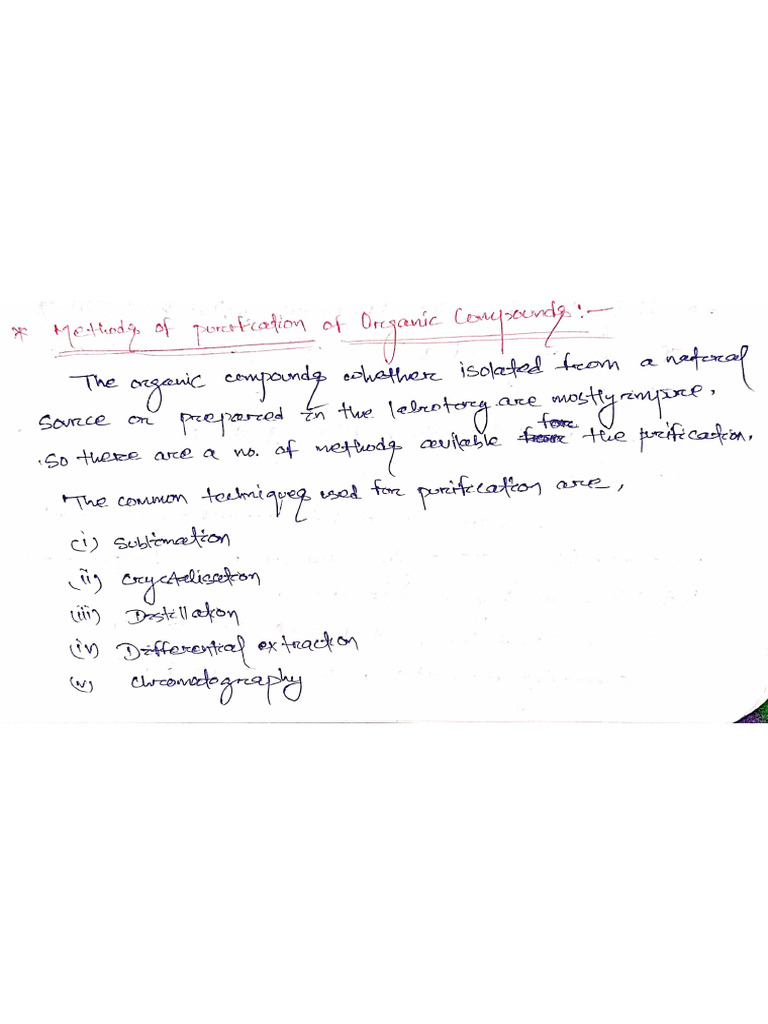 * Methods of purification of Organic Compounds:-
The organic compounds whether isolated from a nateral
source or prepared in the labrotory are mostly impure,
so there are a no. of methods avilable from for the purification.
The common techniques used for purification are,
(i) Sublimation
(ii) Crystalisation
(iii) Distillation
(iv) Differential extraction
(v) chromatography